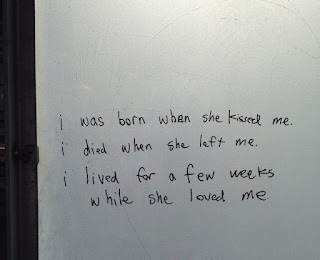 i was born when she kissed me.
i died when she left me.
i lived for a few weeks
while she loved me.